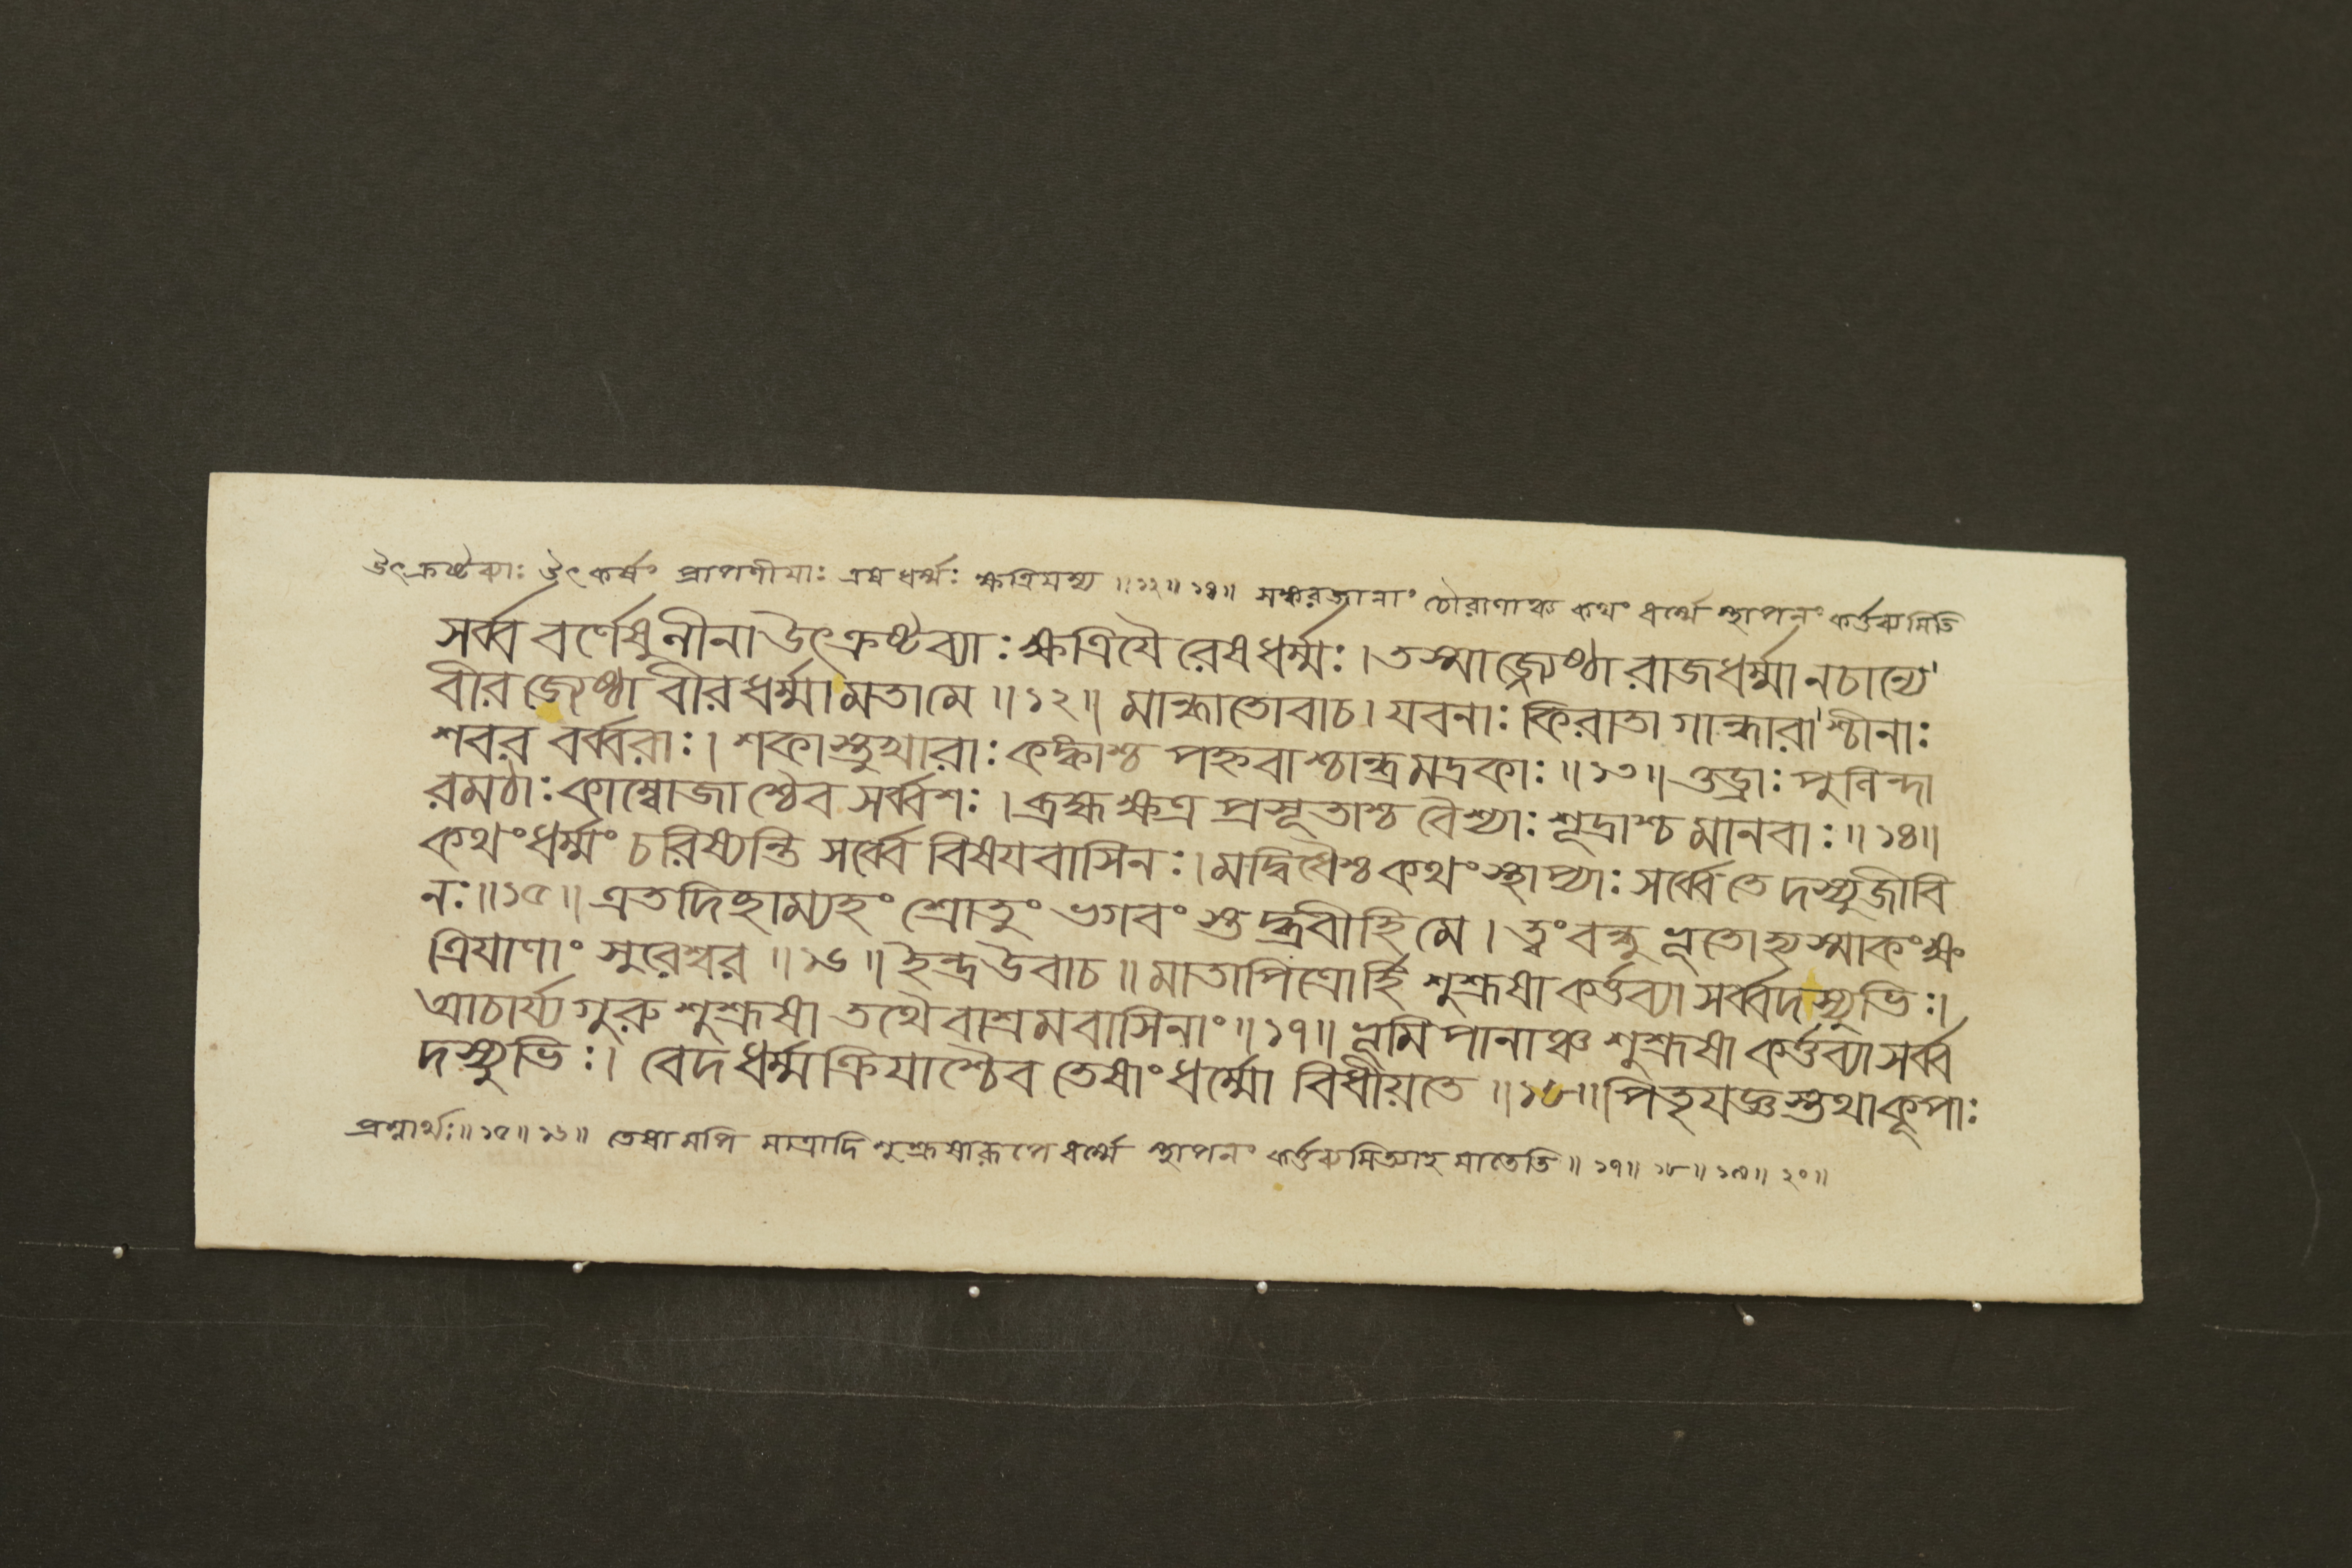 উৎক্রষ্টব্যাঃ উৎকর্ষং প্রাপণীয়াঃ এষধর্ম্মঃ ক্ষত্রিয়স্য ॥ ১২ ॥ ১৪ ॥ সঙ্করজানাং চৌরাণাঞ্চ কথং ধর্ম্মে স্থাপনং কর্ত্তব্যমিতি
সর্ব্ব বর্ণেষুনীনাউৎক্রষ্টব্যাঃ ক্ষত্রিযৈ রেষধর্ম্মঃ । তস্মাজ্জ্যেষ্ঠা রাজধর্ম্মা নচান্যে
বীর জ্যেষ্ঠা বীরধর্ম্মামতামে ॥ ১২ ॥ মান্ধাতোবাচ । যবনাঃ কিরাতা গান্ধারাশ্চীনাঃ
শবর বর্ব্বরাঃ । শকাস্তুখারাঃ কঙ্কাশ্চ পহ্নবাশ্চান্দ্রমদ্রকাঃ ॥ ১৩ ॥ ওড্রাঃ পুলিন্দা
রমঠাঃ কাম্বোজাশ্চৈব সর্ব্বশঃ । ব্রহ্মক্ষত্র প্রসূতাশ্চ বৈশ্যাঃ শূদ্রাশ্চ মানবাঃ ॥ ১৪ ॥
কথংধর্ম্মং চরিষ্যন্তি সর্ব্বে বিষযবাসিনঃ । মদ্বিধৈশ্চ কথংস্থাপ্যাঃ সর্ব্বেতে দস্যুজীবি
নঃ ॥ ১৫ ॥ এতদিচ্ছাম্যহং শ্রোতুং ভগবং স্তদ্ব্রবীহিমে । ত্বংবন্ধু ভূতোহ্যস্মাকংক্ষ
ত্রিযাণাং সুরেশ্বর ॥ ১৬ ॥ ইন্দ্রউবাচ ॥ মাতাপিত্রোর্হি শুশ্রূষা কর্ত্তব্যা সর্ব্বদস্যুভিঃ ।
আচার্য্য গুরু শুশ্রূষা তথৈবাশ্রমবাসিনাং ॥ ১৭ ॥ ভূমিপানাঞ্চ শুশ্রূষা কর্ত্তব্যা সর্ব্ব
দস্যুভিঃ । বেদধর্ম্মক্রিযাশ্চৈব তেষাংধর্ম্মো বিধীয়তে ॥ ১৮ ॥ পিতৃযজ্ঞস্তথাকূপাঃ
প্রশ্নার্থঃ ॥ ১৫ ॥ ১৬ ॥ তেষামপি মাত্রাদি শুশ্রূষারূপে ধর্ম্মে স্থাপনং কর্ত্তব্যমিত্যাহ মাতেতি ॥ ১৭ ॥ ১৮ ॥ ১৯ ॥ ২০ ॥